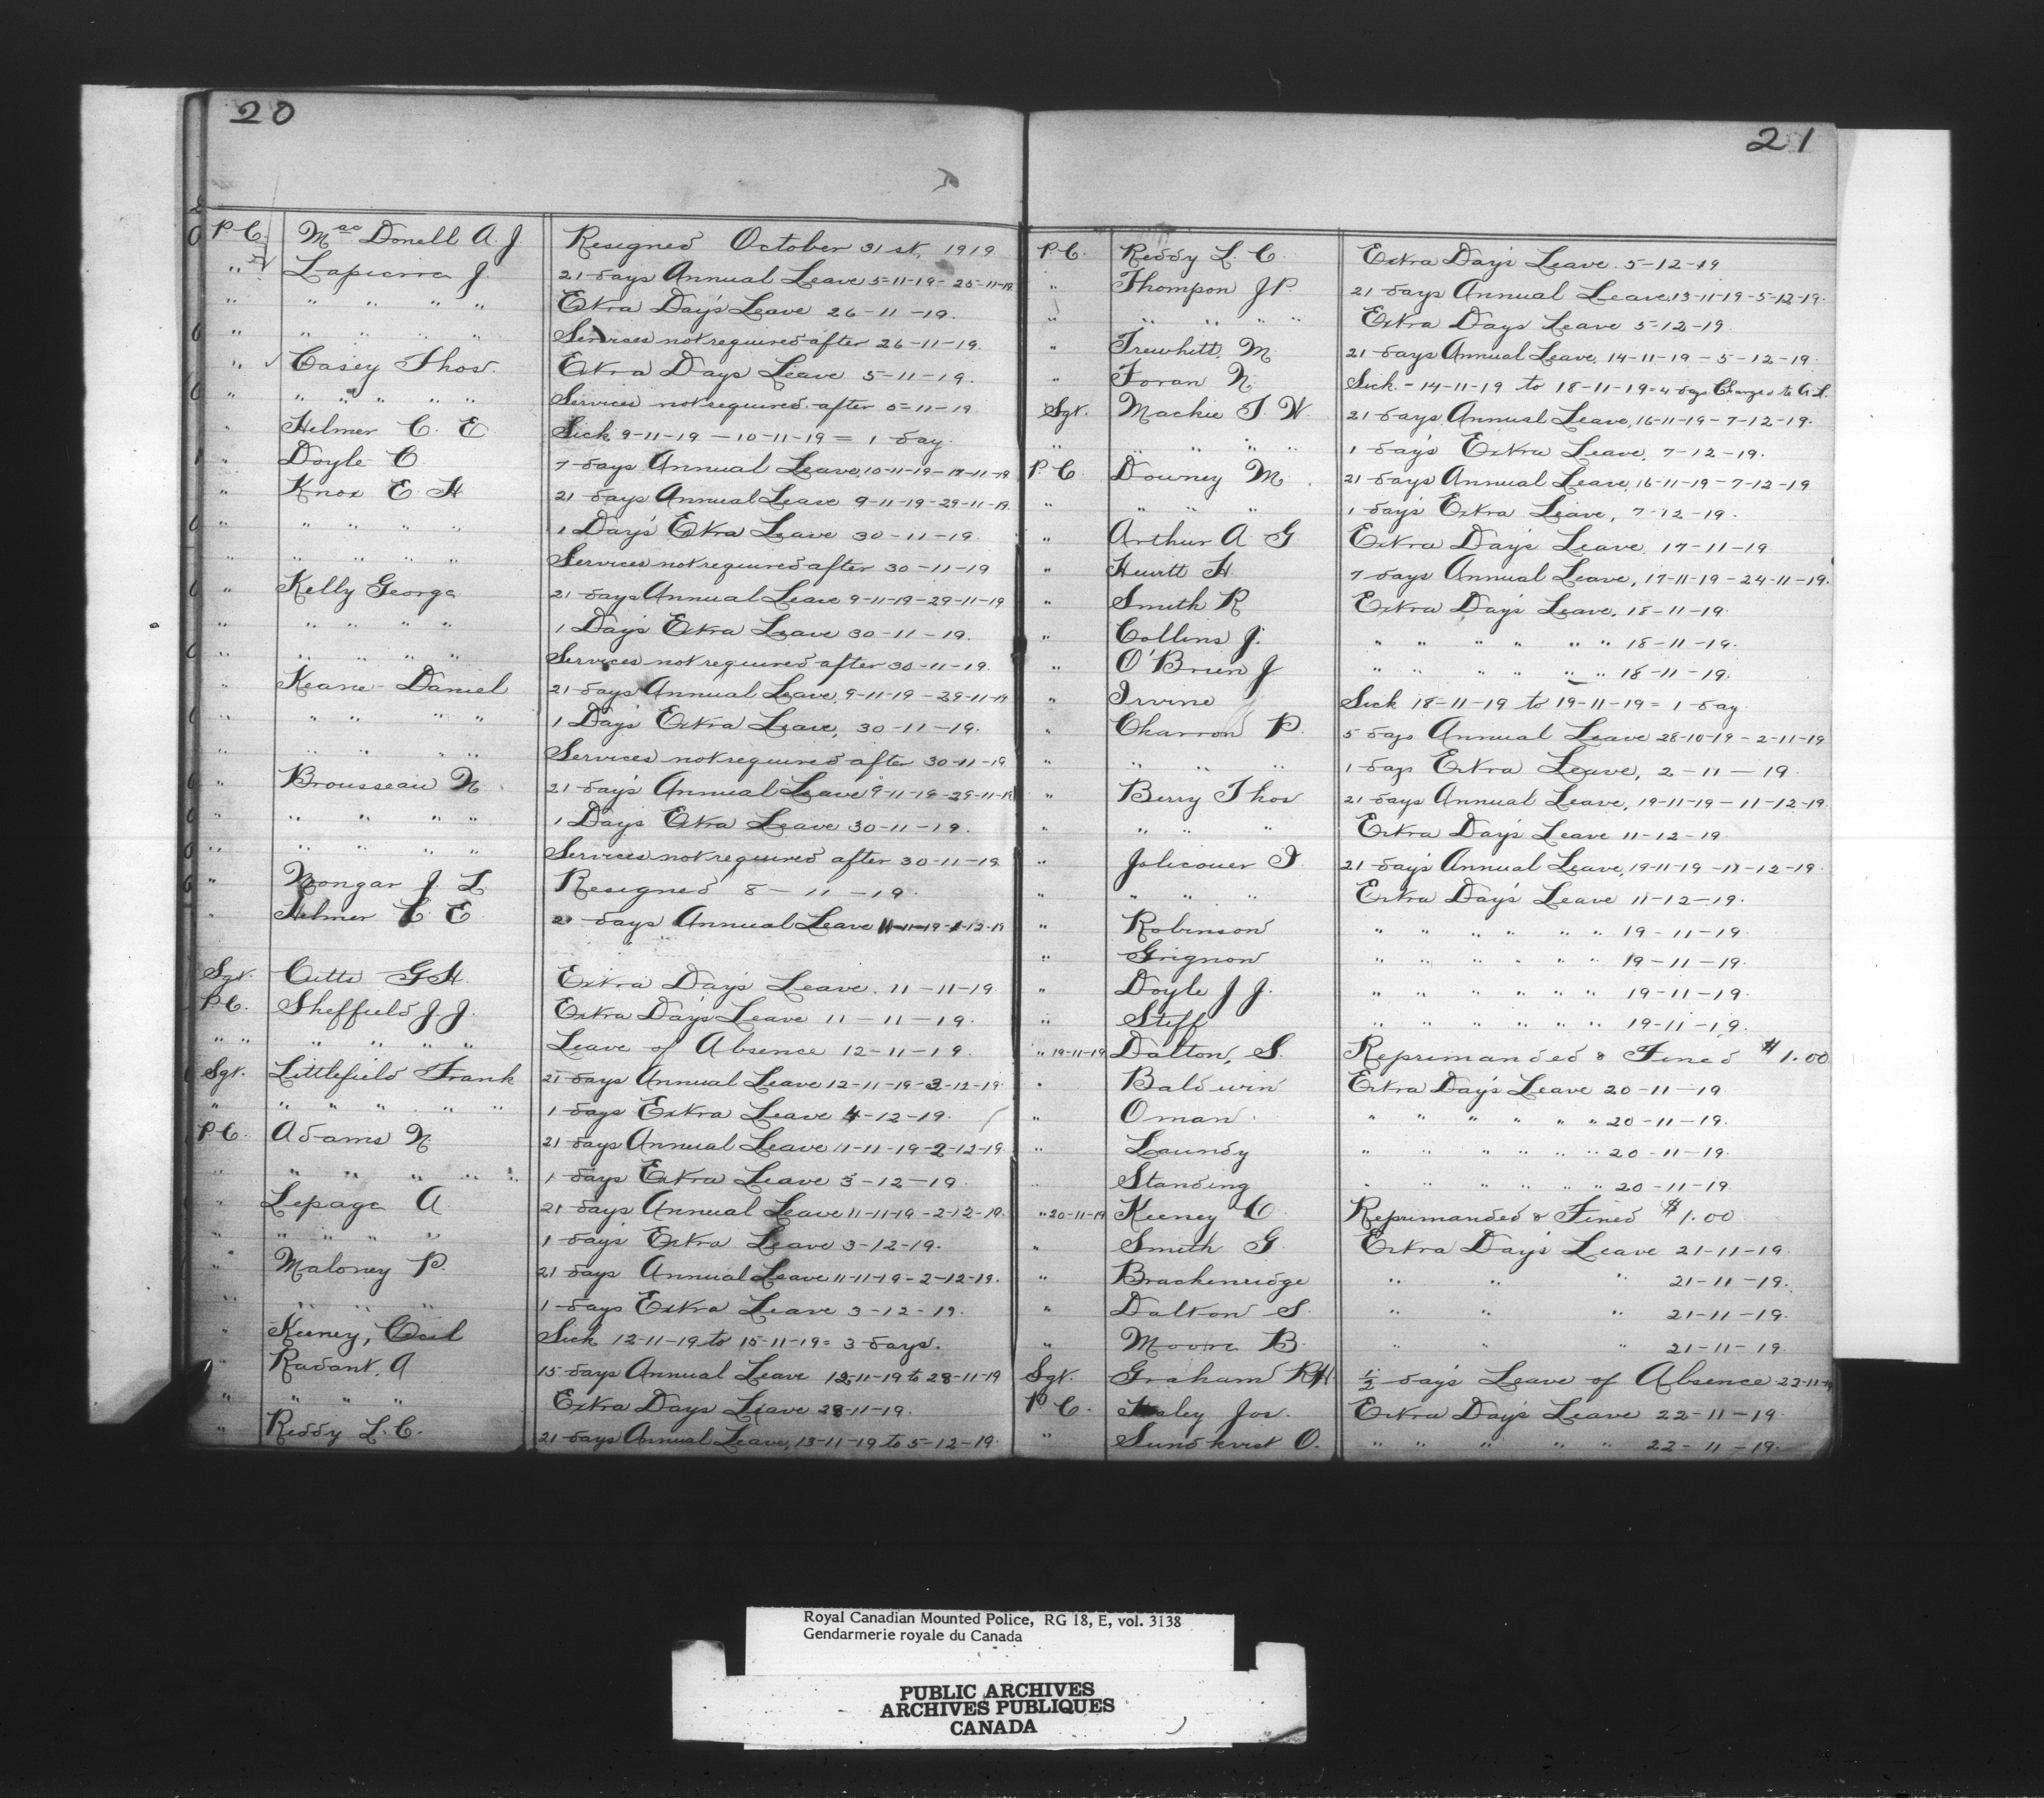 20
P.C. MacDonell A. J. Resigned October 31st, 1919.
" Lapierre J. 21 days Annual Leave 5-11-19 - 25-11-19
" " " " " Extra Day's Leave 26-11-19.
" " " " " Services not required after 26-11-19.
" Casey Thos. Extra Days Leave 5-11-19.
" " " " " Services not required after 5-11-19
" Helmer C. E. Sick 9-11-19 - 10-11-19 = 1 day.
" Doyle C 7 days Annual Leave, 10-11-19 - 17-11-19
" Knox E H 21 days Annual Leave 9-11-19 - 29-11-19.
" " " " " 1 Day's Extra Leave 30-11-19.
" " " " " Services not required after 30-11-19
" Kelly George 21 days Annual Leave 9-11-19 - 29-11-19
" " " " " 1 Days Extra Leave 30-11-19.
" " " " " Services not required after 30-11-19.
" Keane Daniel 21 days Annual Leave, 9-11-19 - 29-11-19
" " " " " 1 Days Extra Leave, 30-11-19.
" " " " " Services not required after 30-11-19
" Brousseau N. 21 day's Annual Leave 9-11-19 - 29-11-19
" " " " " 1 Days Extra Leave 30-11-19.
" " " " " Services not required after 30-11-19
" Mongar J. L Resigned 8-11-19.
" Helmer C E 21 days Annual Leave 11-11-19 - 1-12-19
Sgt. Cutts G H. Extra Day's Leave. 11-11-19.
P.C. Sheffield J. J. Extra Day's Leave 11-11-19.
" " " " " " Leave of Absence 12-11-19.
Sgt. Littlefield Frank 21 days Annual Leave 12-11-19 - 3-12-19.
" " " " " " 1 days Extra Leave 4-12-19.
P.C. Adams N. 21 days Annual Leave 11-11-19 - 2-12-19.
" " " " " 1 days Extra Leave 3-12-19.
" Lepage A 21 days Annual Leave 11-11-19 - 2-12-19.
" " " " " 1 day's Extra Leave 3-12-19.
" Maloney P. 21 days Annual Leave 11-11-19 - 2-12-19.
" " " " 1 days Extra Leave 3-12-19.
" Keeney, Cecil Sick 12-11-19 to 15-11-19 = 3 days.
" Radant. A 15 days Annual Leave 12-11-19 to 28-11-19
" " " " Extra Days Leave 28-11-19.
" Reddy L. C. 21 days Annual Leave, 13-11-19 to 5-12-19.
21
P.C. Reddy L. C. Extra Day's Leave. 5-12-19
" Thompson J P. 21 days Annual Leave, 13-11-19 - 5-12-19.
" " " " " Extra Days Leave 5-12-19.
" Trewhitt. M. 21 days Annual Leave, 14-11-19 - 5-12-19.
" Foran N. Sick - 14-11-19 to 18-11-19 = 4 days Charged to A.L.
Sgt. Mackie T. W. 21 days Annual Leave, 16-11-19 - 7-12-19.
" " " " " 1 day's Extra Leave, 7-12-19.
P.C. Downey M. 21 days Annual Leave, 16-11-19 - 7-12-19
" " " " 1 day's Extra Leave, 7-12-19.
" Arthur A G Extra Day's Leave. 17-11-19
" Hewitt H. 7 days Annual Leave, 17-11-19 - 24-11-19.
" Smith R Extra Day's Leave, 18-11-19.
" Collins J. " " " " " " 18-11-19.
" O'Brien J " " " " " " 18-11-19.
" Irvine Sick 18-11-19 to 19-11-19 = 1 day
" Charron P. 5 days Annual Leave 28-10-19 - 2-11-19
" " " " 1 days Extra Leave, 2-11-19.
" Berry Thos 21 days Annual Leave, 19-11-19 - 11-12-19.
" " " " Extra Day's Leave 11-12-19.
" Jolicouer I. 21 day's Annual Leave, 19-11-19 - 11-12-19.
" " " " Extra Day's Leave 11-12-19.
" Robinson " " " " " " 19-11-19.
" Grignon " " " " " " 19-11-19.
" Doyle J J. " " " " " " 19-11-19.
" Steff " " " " " " 19-11-19.
" 19-11-19 Dalton, S. Reprimanded & Fined $1.00
" Baldwin Extra Day's Leave 20-11-19
" Oman " " " " " " 20-11-19.
" Laundy " " " " " " 20-11-19.
" Standing " " " " " " 20-11-19.
" 20-11-19 Keeney C. Reprimanded & Fined $1.00
" Smith G. Extra Day's Leave 21-11-19.
" Brackenridge " " " 21-11-19.
" Dalton S. " " " 21-11-19.
" Moore B. " " " 21-11-19.
Sgt. Graham R H ½ day's Leave of Absence 22-11-19
P.C. Jos. Extra Day's Leave 22-11-19.
" Sundkvist O. " " " " " 22-11-19.
Royal Canadian Mounted Police, RG 18, E, vol. 3138
Gendarmerie royale du Canada
PUBLIC ARCHIVES
ARCHIVES PUBLIQUES
CANADA